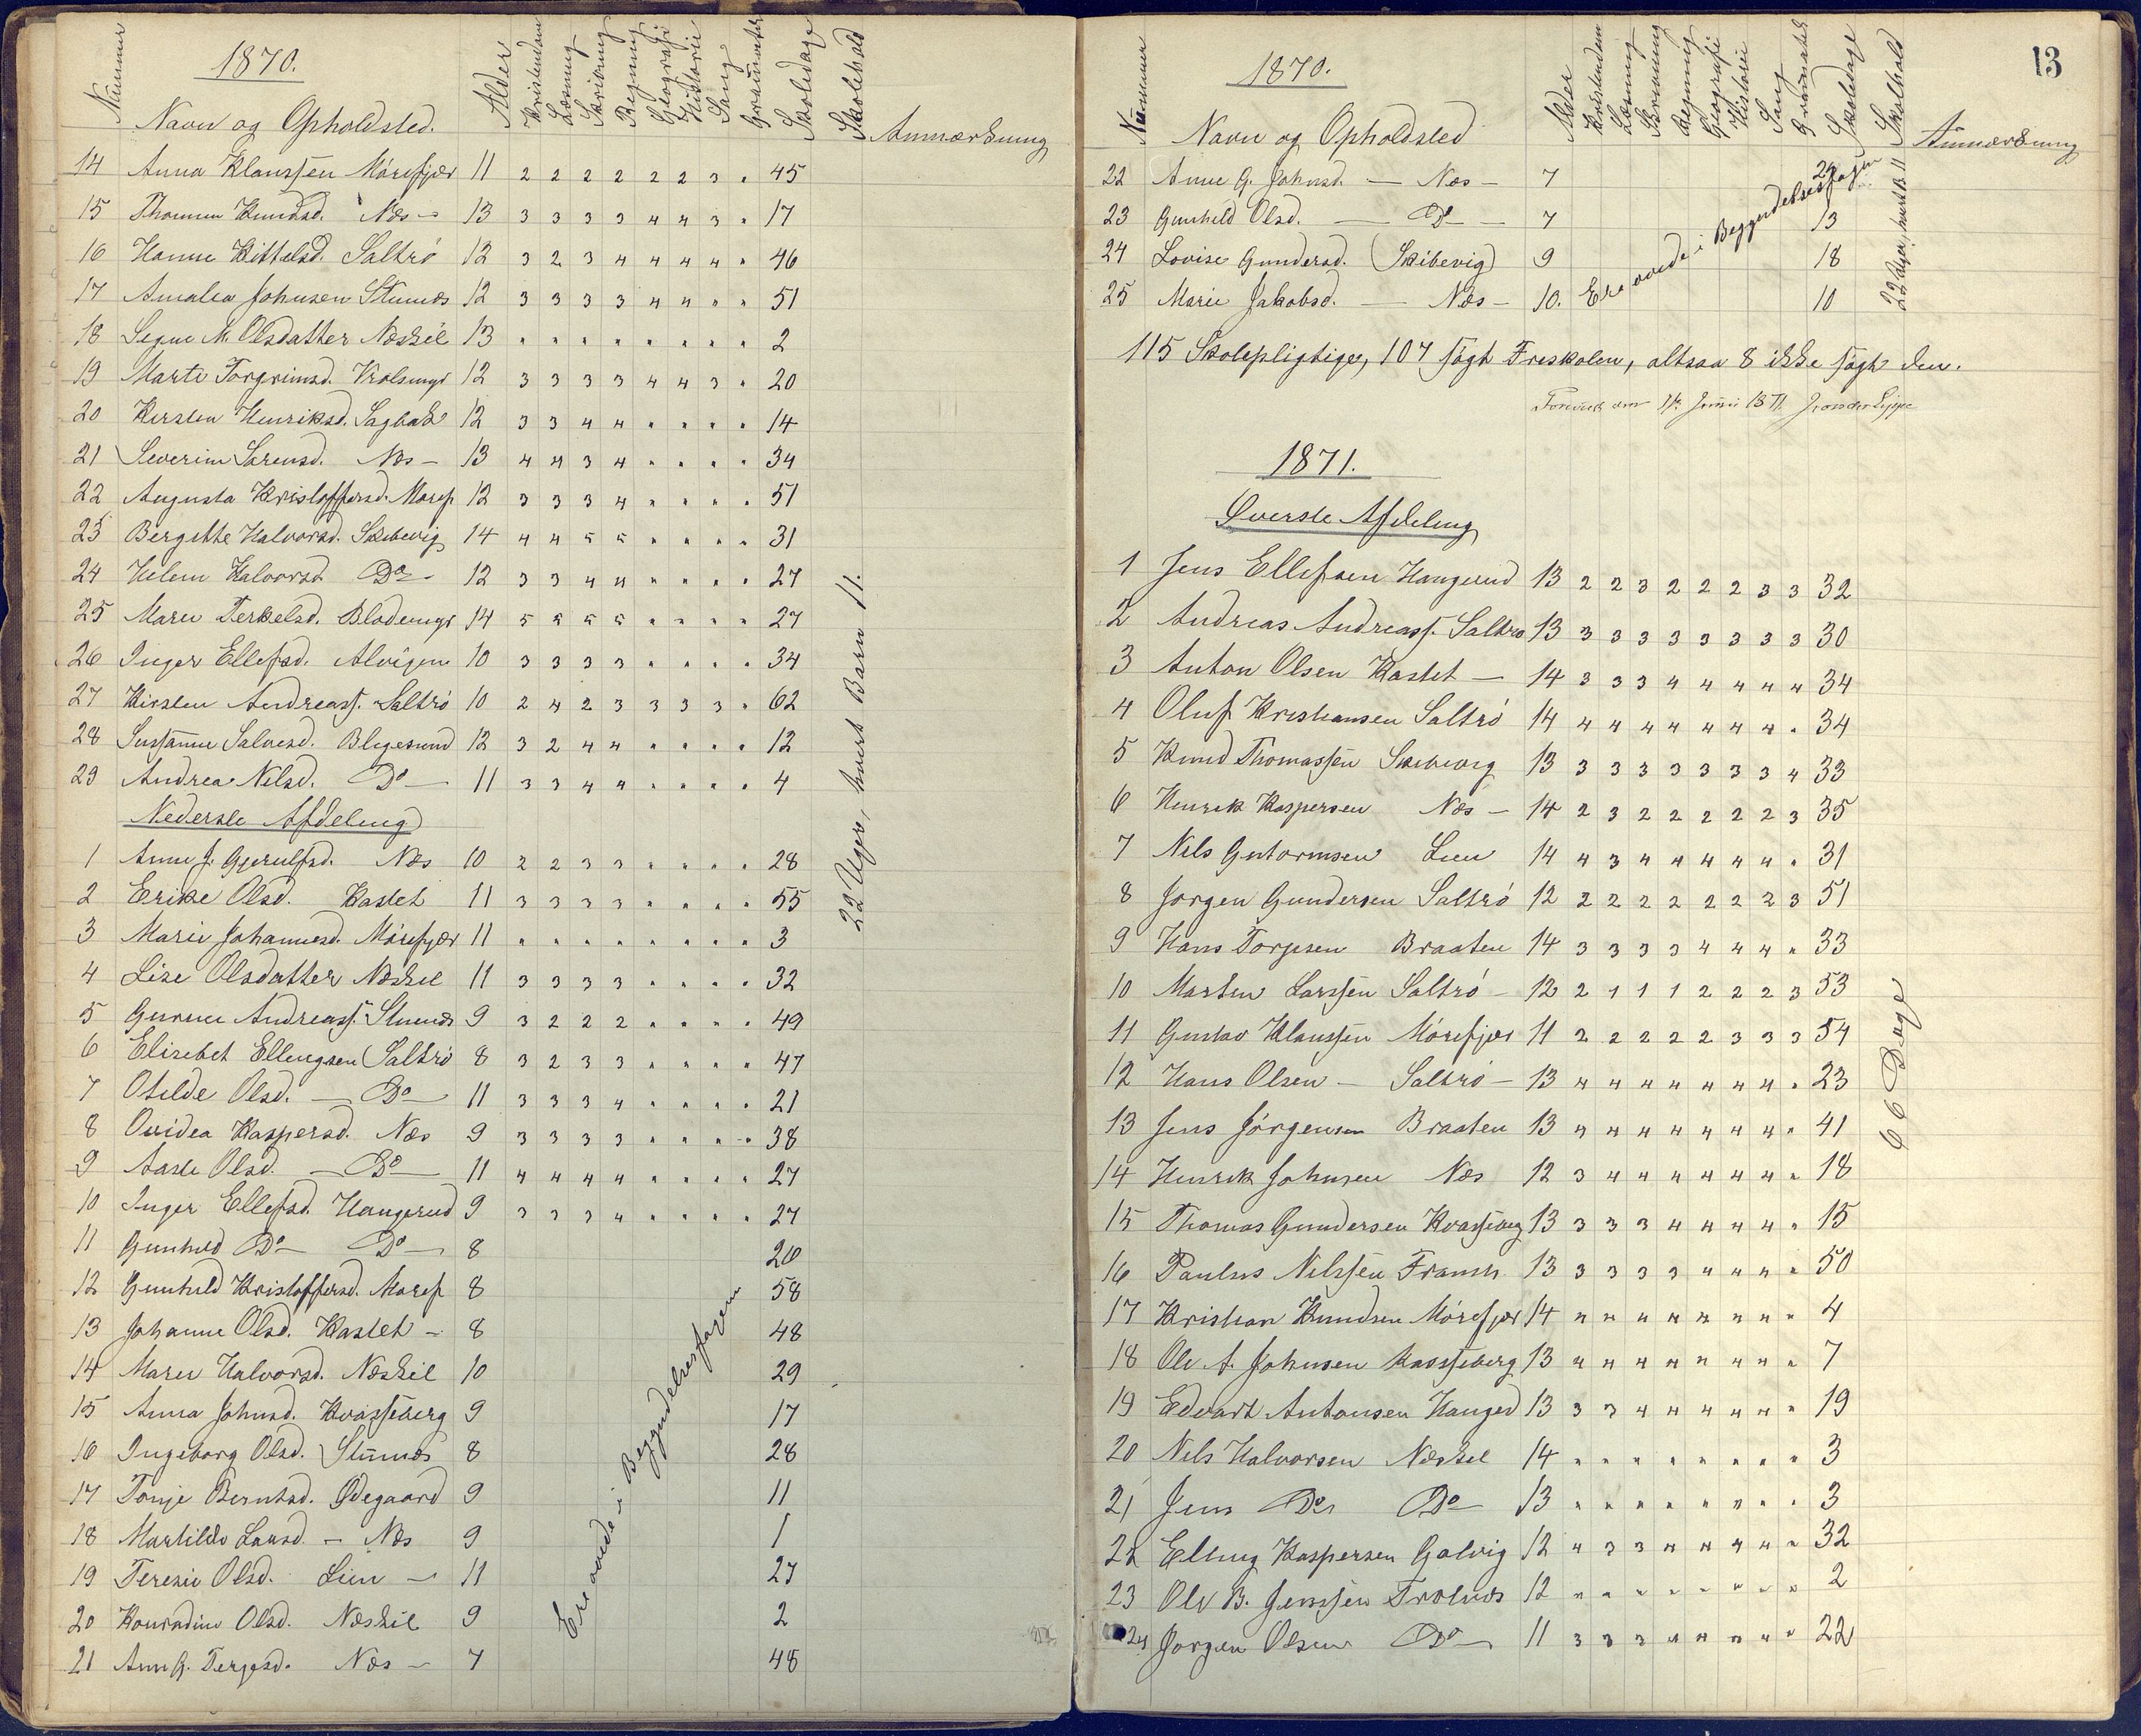 1870.
Nummer Navn og Opholdsted. Alder Kristendom Læsning Skrivning Regning Geografi Historie Sang Grammatik Skoledage Skolehold Anmærkning
14 Anna Klaussen Mörefjær 11 2 2 2 2 2 2 3 " 45
15 Thomine Knudsd. Næs - 13 3 3 3 3 4 4 3 " 17
16 Hanne Kittelsd. Saltrö 12 3 2 3 4 4 4 4 " 46
17 Amalia Johnsen Stumæs 12 3 3 3 3 4 4 " " 51
18 Signe M. Olsdatter Næskil 13 " " " " " " " " 2
19 Marte Torgrimsd. 12 3 3 3 3 4 4 3 " 20
20 Kirsten Henriksd. Sagbak 12 3 3 4 4 " " " " 14
21 Severine Sörensd. Næs - 13 4 4 3 4 " " " " 34
22 Augusta Kristoffersd. Moref 12 3 3 3 4 " " " " 51
23 Bergitte Halvorsd. Skibevig 14 4 4 5 5 " " " " 31
24 Helene Halvorsd. Do - 12 3 3 4 4 " " " " 27
25 Maren Terkelsd. 14 5 5 5 5 " " " " 27
26 Inger Ellefsd. Alvigen 10 3 3 3 3 " " " " 34
27 Kirsten Andreasf. Saltrö 10 2 4 2 3 3 3 3 " 62
28 Susanne Salvesd. Blegesund 12 3 2 4 4 " " " " 12
29 Andrea Nilsd. Do - 11 3 3 4 4 " " " " 4
22 Uger, hvert Barn 11.
Nederste Afdeling
1 Anne J. Gjerulfsd. Næs 10 2 2 3 3 " " " " 28
2 Erike Olsd. Kastet 11 3 3 3 3 " " " " 55
3 Marie Johannesd. Mörefjær 11 " " " " " " " " 3
4 Lise Olsdatter Næskil 11 3 3 3 3 " " " " 32
5 Gurine Andreasf. Stumæs 9 3 2 2 2 " " " " 49
6 Elisebet Ellingsen Saltrö 8 3 2 3 3 " " " " 47
7 Otilde Olsd. - Do - 11 3 3 3 4 " " " " 21
8 Ovidea Kaspersd. Næs 9 3 3 3 3 " " " " 38
9 Aaste Olsd. - Do - 11 4 4 4 4 " " " " 27
10 Inger Ellefsd. Haugerud 9 3 3 3 4 " " " " 27
11 Gunhild Do - Do - 8 26
12 Gunhild Kristoffersd. Moref 8 58
13 Johanne Olsd. Kastet - 8 48
14 Maren Halvorsd. Næskil 10 29
15 Anna Johnsd. Kvasseberg 9 17
16 Ingeborg Olsd. Stumæs 8 28
17 Tonje Berntsd. Ødegaard 9 11
18 Martilde Larsd. - Næs 9 1
19 Teresie Olsd. Lien - 11 27
20 Konradine Olsd. Næskil 9 2
21 Anne G. Tergesd. Næs - 7 48
Ere övede i Begyndelsesfagene
13
1870.
Nummer Navn og Opholdsted Alder Kristendom Læsning Skrivning Regning Geografi Historie Sang Grammatik Skoledage Skolehold Anmærkning
22 Anne G. Johnsd. - Næs - 7 29
23 Gunhild Olsd. - Do - 7 13
24 Lovise Gundersd. Skibevig 9 18
25 Marie Jakobsd. - Næs - 10. 10
Ere övede i Begyndelsesfagene
22 Uger, hvert B. 11
115 Skolepligtige, 107 søgt Friskolen, altsaa 8 ikke søgt den.
1871.
Øverste Afdeling
1 Jens Ellefsen Haugerud 13 2 2 3 2 2 2 3 3 32
2 Andreas Andreasf. Saltrö 13 3 3 3 3 3 3 3 3 30
3 Anton Olsen Kastet - 14 3 3 3 4 4 4 4 4 34
4 Oluf Kristiansen Saltrö 14 4 4 4 4 4 4 4 " 34
5 Knud Thomassen Skibevig 13 3 3 3 3 3 3 3 4 33
6 Henrik Kaspersen Næs - 14 2 3 2 2 2 2 2 3 35
7 Nils Guttormsen Lien 14 4 3 4 4 4 4 4 " 31
8 Jörgen Gundersen Saltrö 12 2 2 2 2 2 2 2 3 51
9 Hans Torjesen Braaten 14 3 3 3 3 4 4 4 " 33
10 Morten Larssen Saltrö - 12 2 1 1 1 2 2 2 3 53
11 Gustav Klaussen Mörefjær 11 2 2 2 2 2 3 3 3 54
12 Hans Olsen - Saltrö - 13 4 4 4 4 4 4 4 " 23
13 Jens Jörgensen Braaten 13 4 4 4 4 4 4 4 " 41
14 Henrik Johnsen Næs 12 3 4 4 4 4 4 4 " 18
15 Thomas Gundersen Kvasseberg 13 3 3 3 4 4 4 4 " 15
16 Paulus Nilssen 13 3 3 3 3 4 4 4 " 50
17 Kristian Knudsen Mörefjær 14 " " " " " " " " 4
18 Ole A. Johnsen Kvasseberg 13 4 4 4 4 4 4 4 " 7
19 Edvart Antonsen 13 3 3 4 4 4 4 4 " 19
20 Nils Halvorsen Næskil 14 " " " " " " " " 3
21 Jens Do - Do - 13 " " " " " " " " 3
22 Elling Kaspersen Galvig 12 4 3 3 4 4 4 4 " 32
23 Ole B. Jenssen Trolnæs 12 " " " " " " " " 2
24 Jörgen Olsen Do - 11 3 3 3 4 4 4 4 " 22
66 Dage